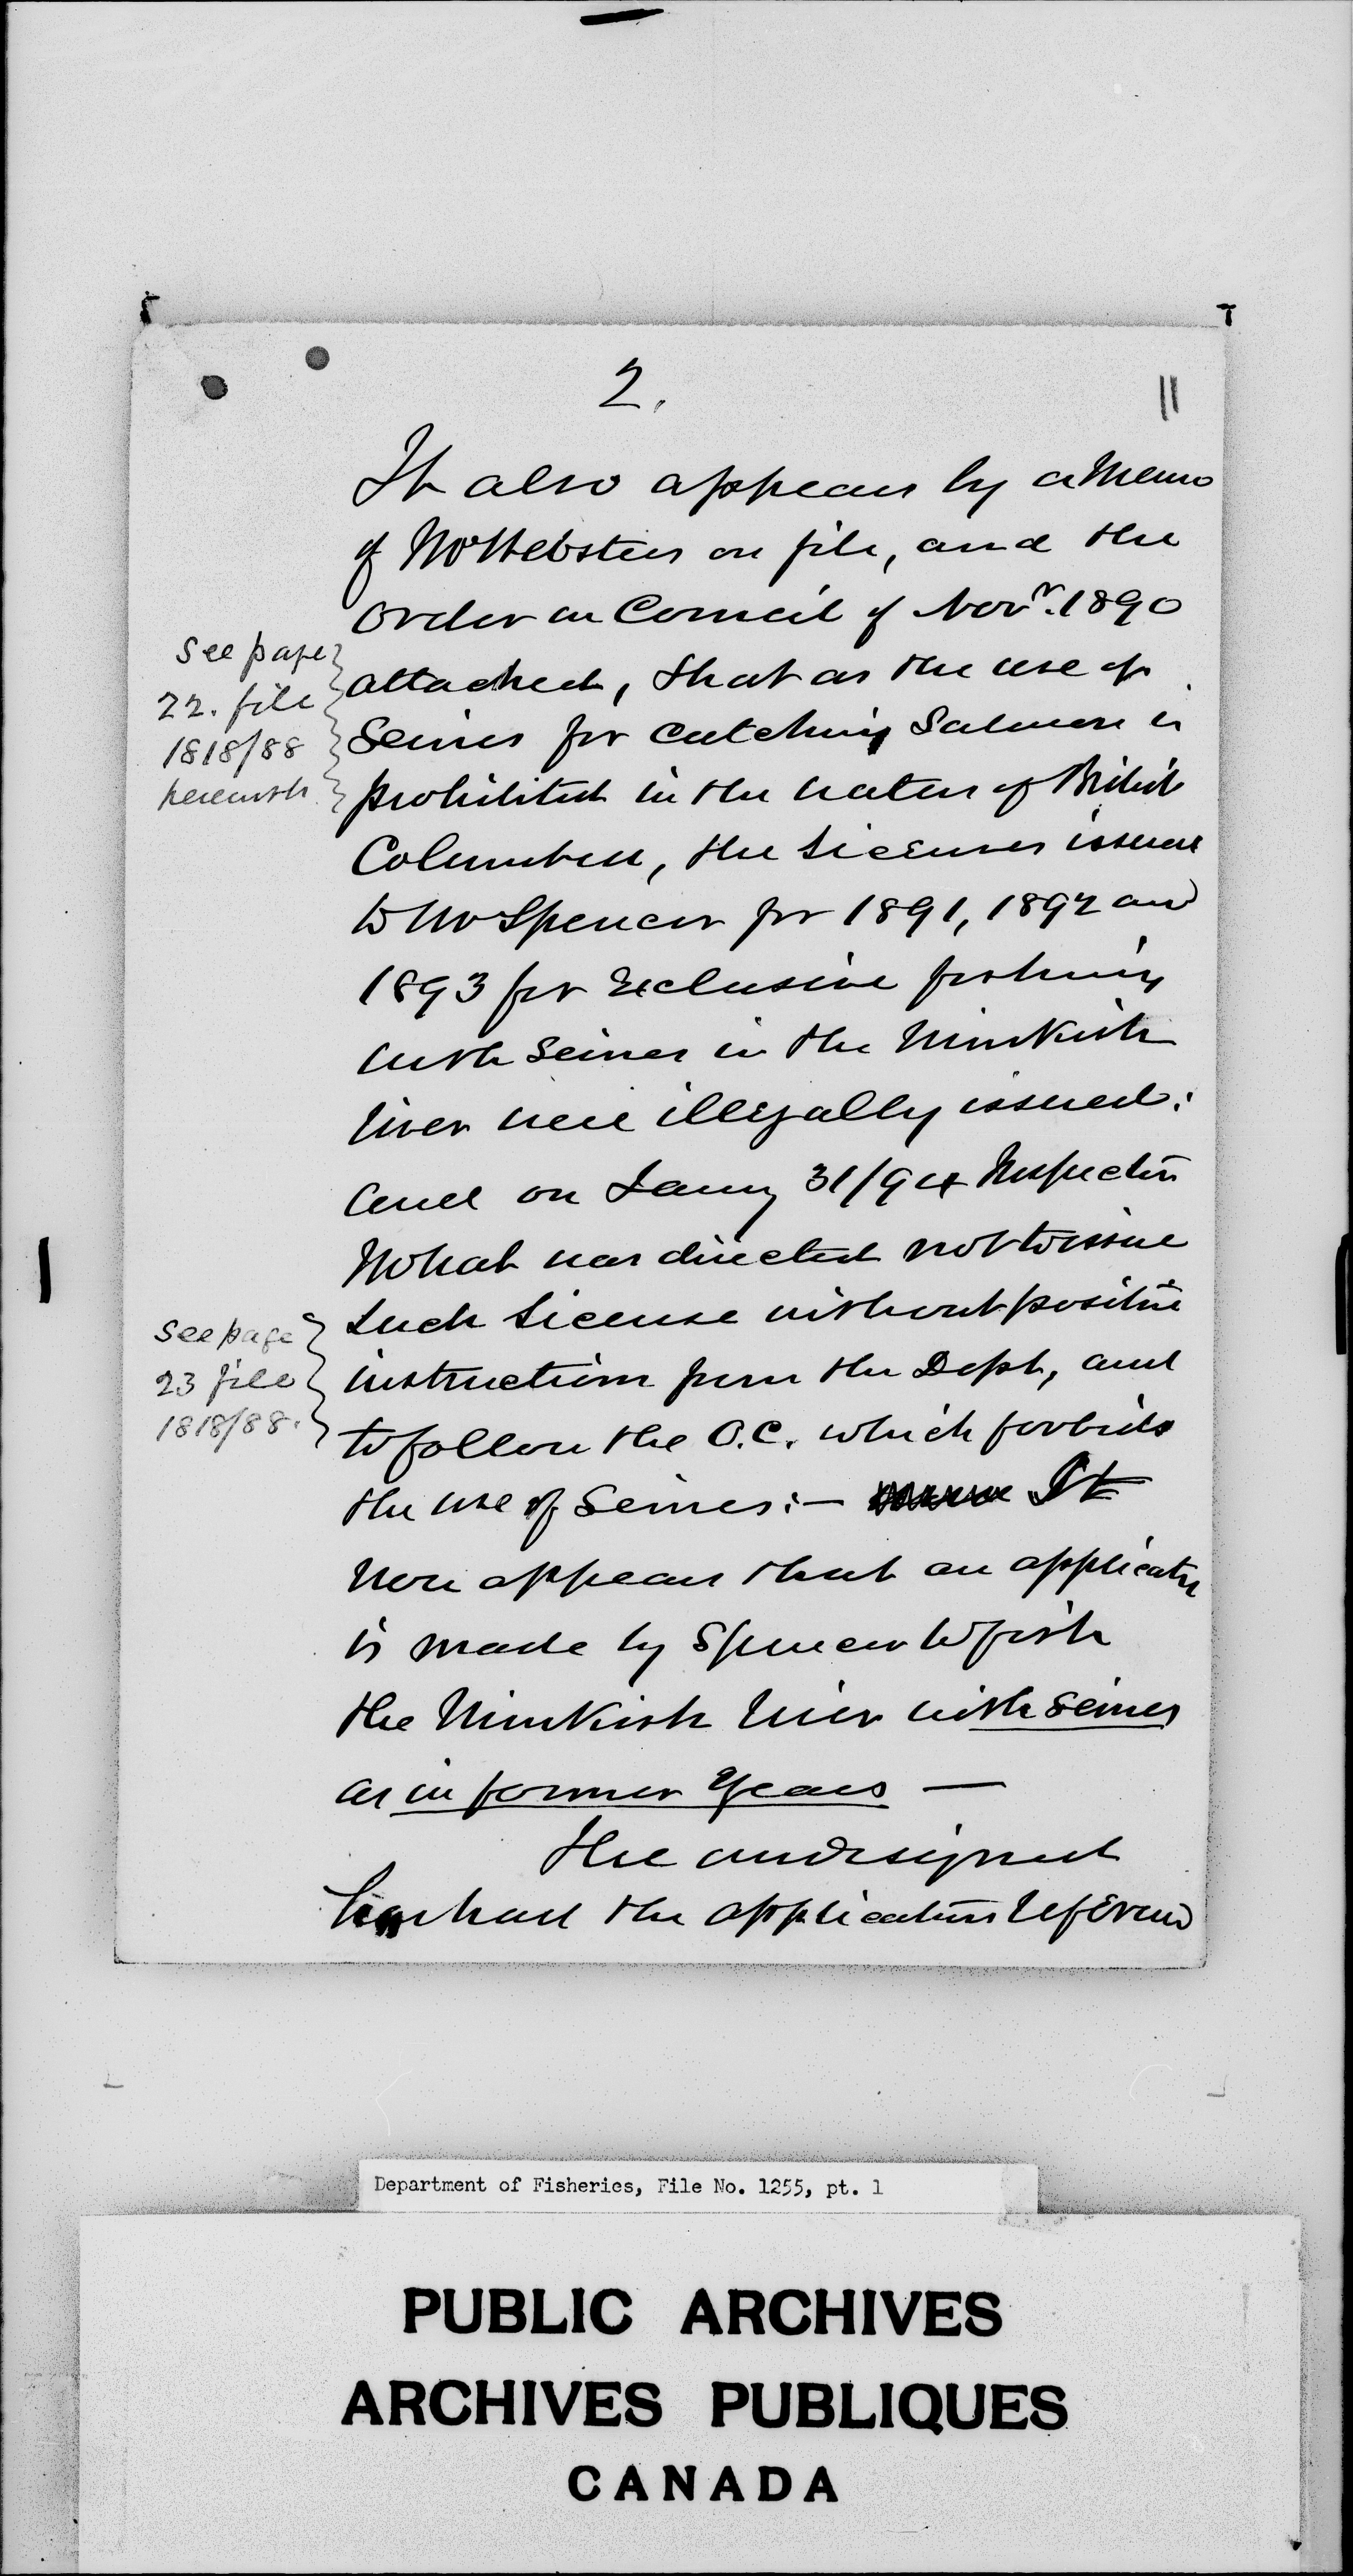 2.
11
It also appears by a Memo
of Mr Websters on file, and the
Order in Council of Novr. 1890
See page
22. file
1818/88
herewith
attached, that as the use of
Seines for catching Salmon is
prohibited in the waters of British
Columbia, the Licenses issued
to Mr Spencer for 1891, 1892 and
1893 for Exclusive fishing
with Seines in the Nimkish
River were illegally issued:
and on Jany 31/94 Inspector
McNab was directed not to issue
See page
23 file
1818/88.
such License without positive
instruction from the Dept, and
to follow the O.C. which forbids
the use of Seines:— It
now appears that an application
is made by Spencer to fish
the Nimkish River with Seines
as in former Years —
The undersigned
has had the application referred
Department of Fisheries, File No. 1255, pt. 1
PUBLIC ARCHIVES
ARCHIVES PUBLIQUES
CANADA